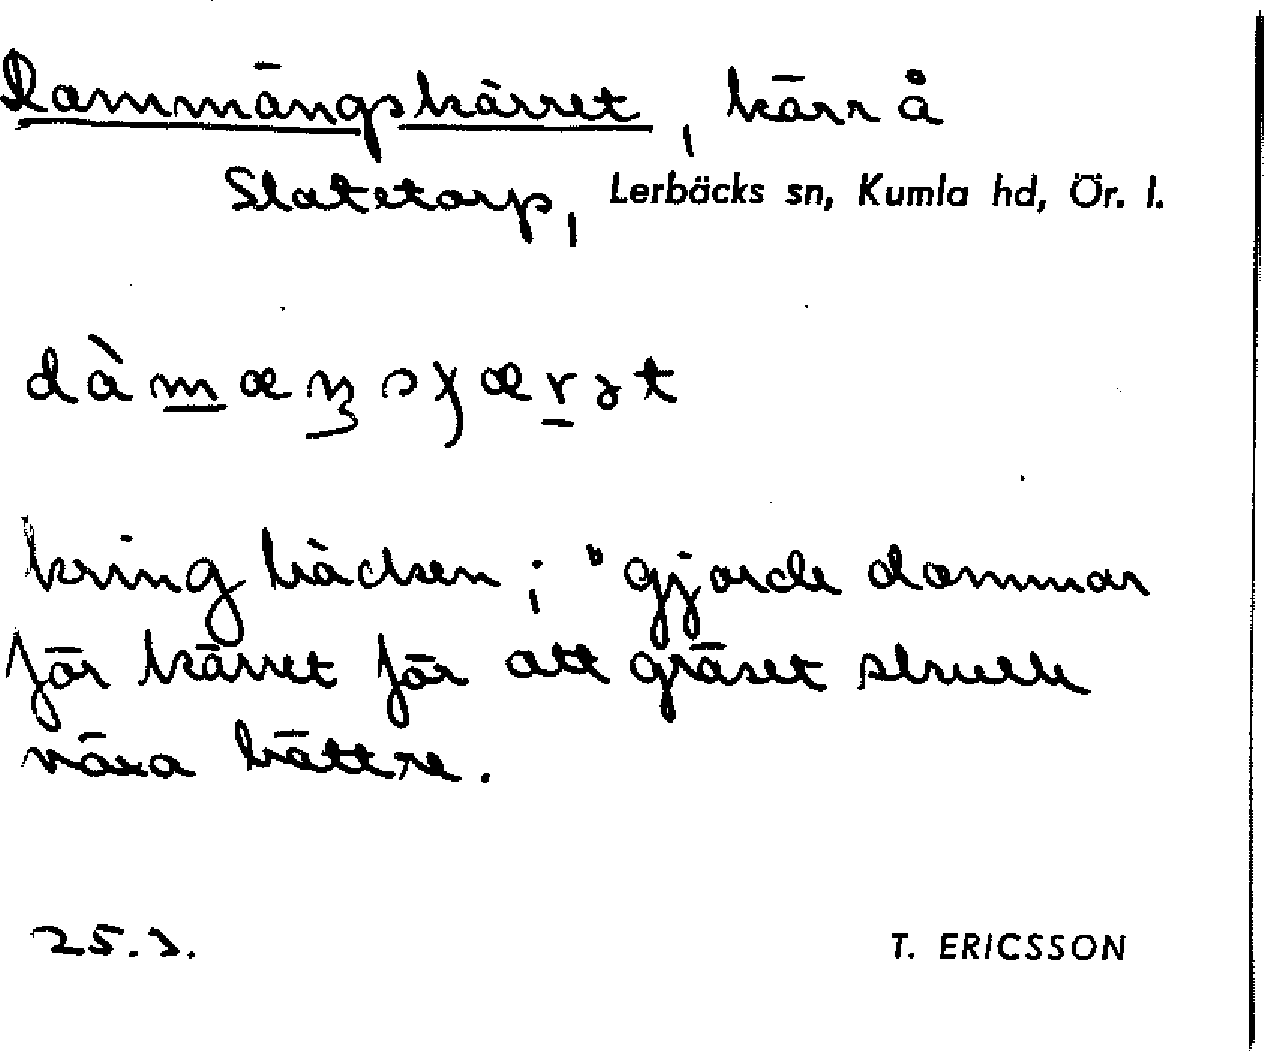 Dammängskärret, kärr å
Slatetorp, Lerbäcks sn, Kumla hd, Ör. l.
kring bäcken; "gjorde dammar
för kärret för att gräset skulle
växa bättre.
25.3.
T. ERICSSON